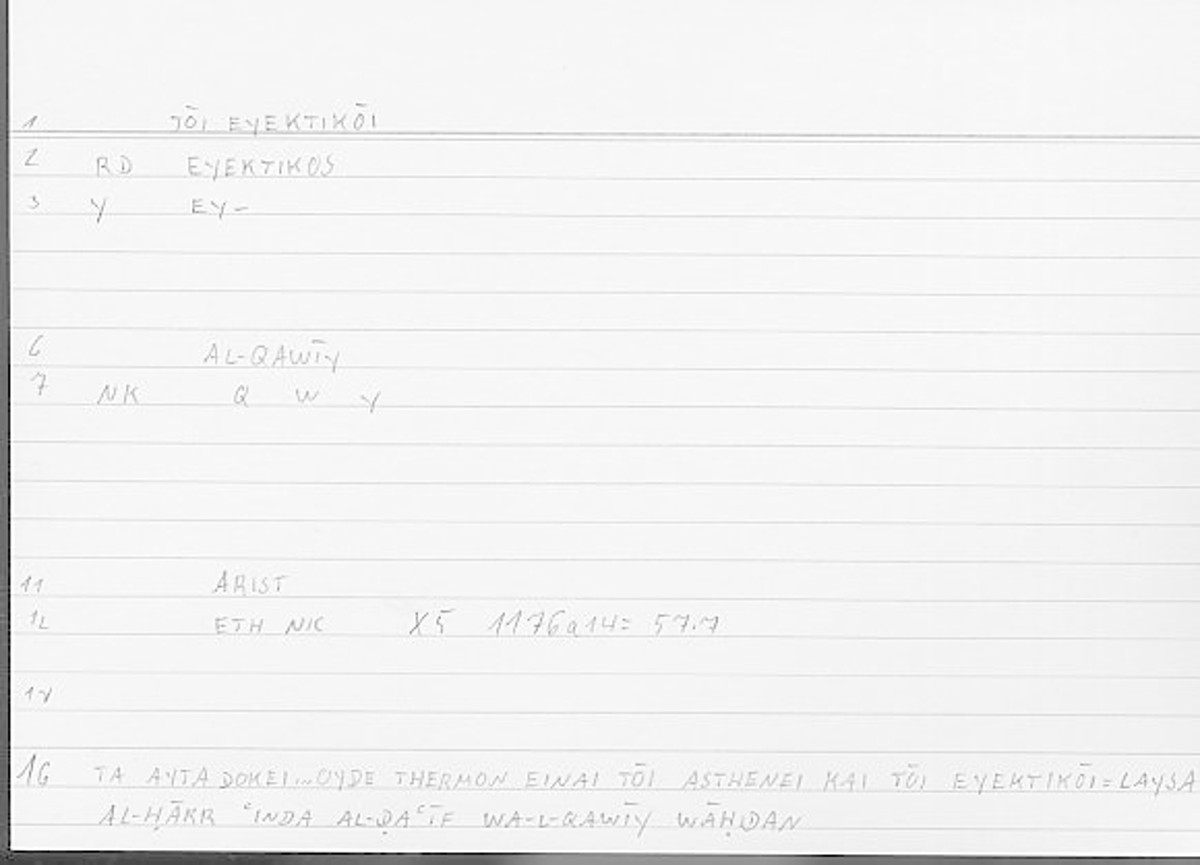 1 TŌI EYEKTIKŌI
2 RD EYEKTIKOS
3 Y EY-
6 AL-QAWĪY
7 NK Q W Y
11 ARIST
12 ETH NIC X5 1176a14= 57.7
14
16 TA AYTA DOKEI...OYDE THERMON EINAI TŌI ASTHENEI KAI TŌI EYEKTIKŌI=LAYSA
AL-ḤĀRR ʿINDA AL-ḌAʿĪF WA-L-QAWĪY WĀḤDAN